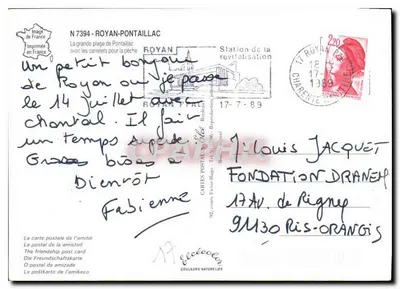 Image de France
Imprimée en France
N 7394 - ROYAN-PONTAILLAC
La grande plage de Pontaillac
avec les carrelets pour la pêche
Un petit bonjour
de Royan où je passe
le 14 juillet avec
Chantal. Il fait
un temps superbe
Grosses bises à
Bientôt
Fabienne
La carte postale de l'amitié
La postal de la amistad
The friendship post card
Die Freundschaftskarte
O postal da amizade
Le poštkarta de l'amikeso
ROYAN
Station de la
revitalisation
ROYAN PAL
17-7-89
17 ROYAN
18
17-
1989
CHARENTE MARITIME
2,20
CARTES POSTALES
Elcécolor
COULEURS NATURELLES
17
J. Louis JACQUET
FONDATION DRANEM
17 Av. de Rigny
91130 RIS-ORANGIS